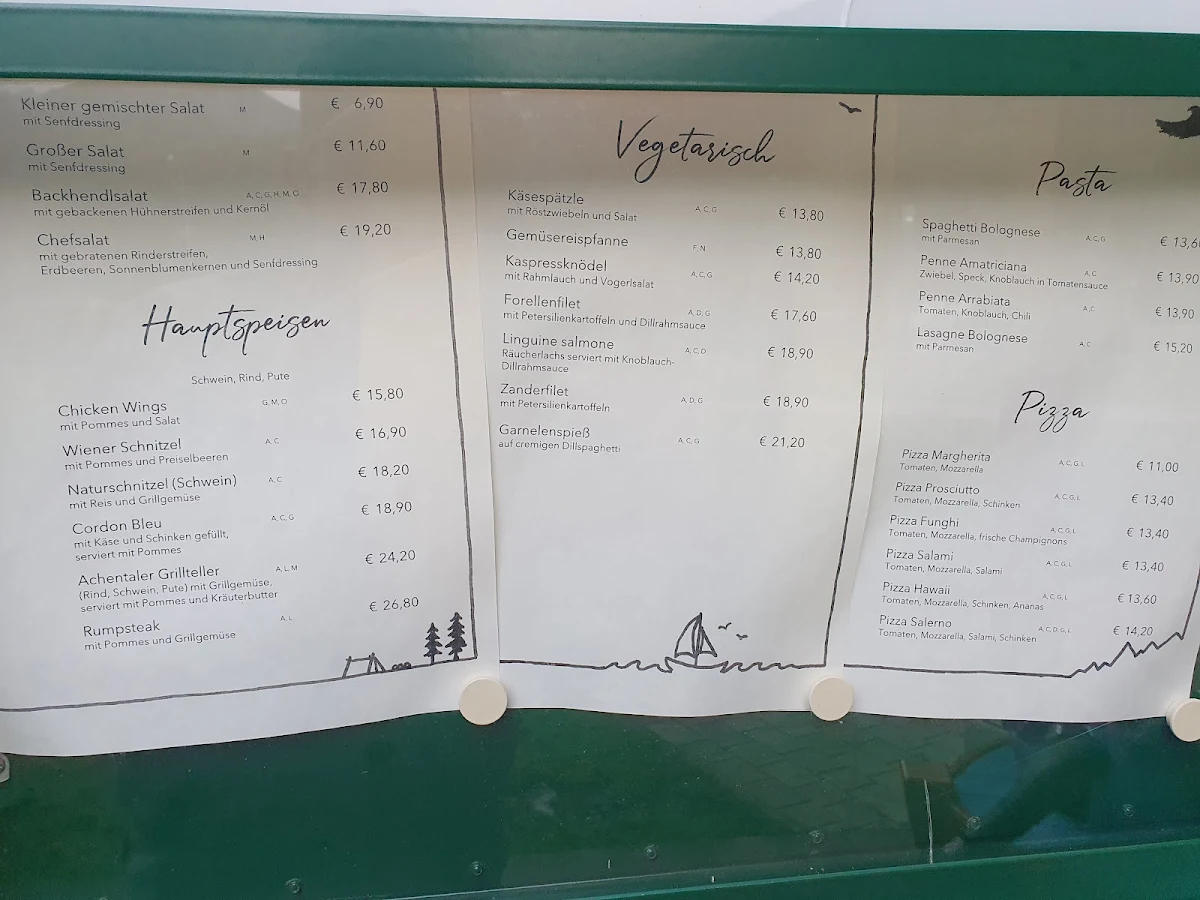 Kleiner gemischter Salat M € 6,90
mit Senfdressing
Großer Salat M € 11,60
mit Senfdressing
Backhendlsalat A, C, G, H, M, O € 17,80
mit gebackenen Hühnerstreifen und Kernöl
Chefsalat M, H € 19,20
mit gebratenen Rinderstreifen,
Erdbeeren, Sonnenblumenkernen und Senfdressing
Hauptspeisen
Schwein, Rind, Pute
Chicken Wings G, M, O € 15,80
mit Pommes und Salat
Wiener Schnitzel A, C € 16,90
mit Pommes und Preiselbeeren
Naturschnitzel (Schwein) A, C € 18,20
mit Reis und Grillgemüse
Cordon Bleu A, C, G € 18,90
mit Käse und Schinken gefüllt,
serviert mit Pommes
Achentaler Grillteller A, L, M € 24,20
(Rind, Schwein, Pute) mit Grillgemüse,
serviert mit Pommes und Kräuterbutter
Rumpsteak A, L € 26,80
mit Pommes und Grillgemüse
Vegetarisch
Käsespätzle A, C, G € 13,80
mit Röstzwiebeln und Salat
Gemüsereispfanne F, N € 13,80
Kaspressknödel A, C, G € 14,20
mit Rahmlauch und Vogerlsalat
Forellenfilet A, D, G € 17,60
mit Petersilienkartoffeln und Dillrahmsauce
Linguine salmone A, C, D € 18,90
Räucherlachs serviert mit Knoblauch-
Dillrahmsauce
Zanderfilet A, D, G € 18,90
mit Petersilienkartoffeln
Garnelenspieß A, C, G € 21,20
auf cremigen Dillspaghetti
Pasta
Spaghetti Bolognese A, C, G € 13,60
mit Parmesan
Penne Amatriciana A, C € 13,90
Zwiebel, Speck, Knoblauch in Tomatensauce
Penne Arrabiata A, C € 13,90
Tomaten, Knoblauch, Chili
Lasagne Bolognese A, C € 15,20
mit Parmesan
Pizza
Pizza Margherita A, C, G, L € 11,00
Tomaten, Mozzarella
Pizza Prosciutto A, C, G, L € 13,40
Tomaten, Mozzarella, Schinken
Pizza Funghi A, C, G, L € 13,40
Tomaten, Mozzarella, frische Champignons
Pizza Salami A, C, G, L € 13,40
Tomaten, Mozzarella, Salami
Pizza Hawaii A, C, G, L € 13,60
Tomaten, Mozzarella, Schinken, Ananas
Pizza Salerno A, C, D, G, L € 14,20
Tomaten, Mozzarella, Salami, Schinken